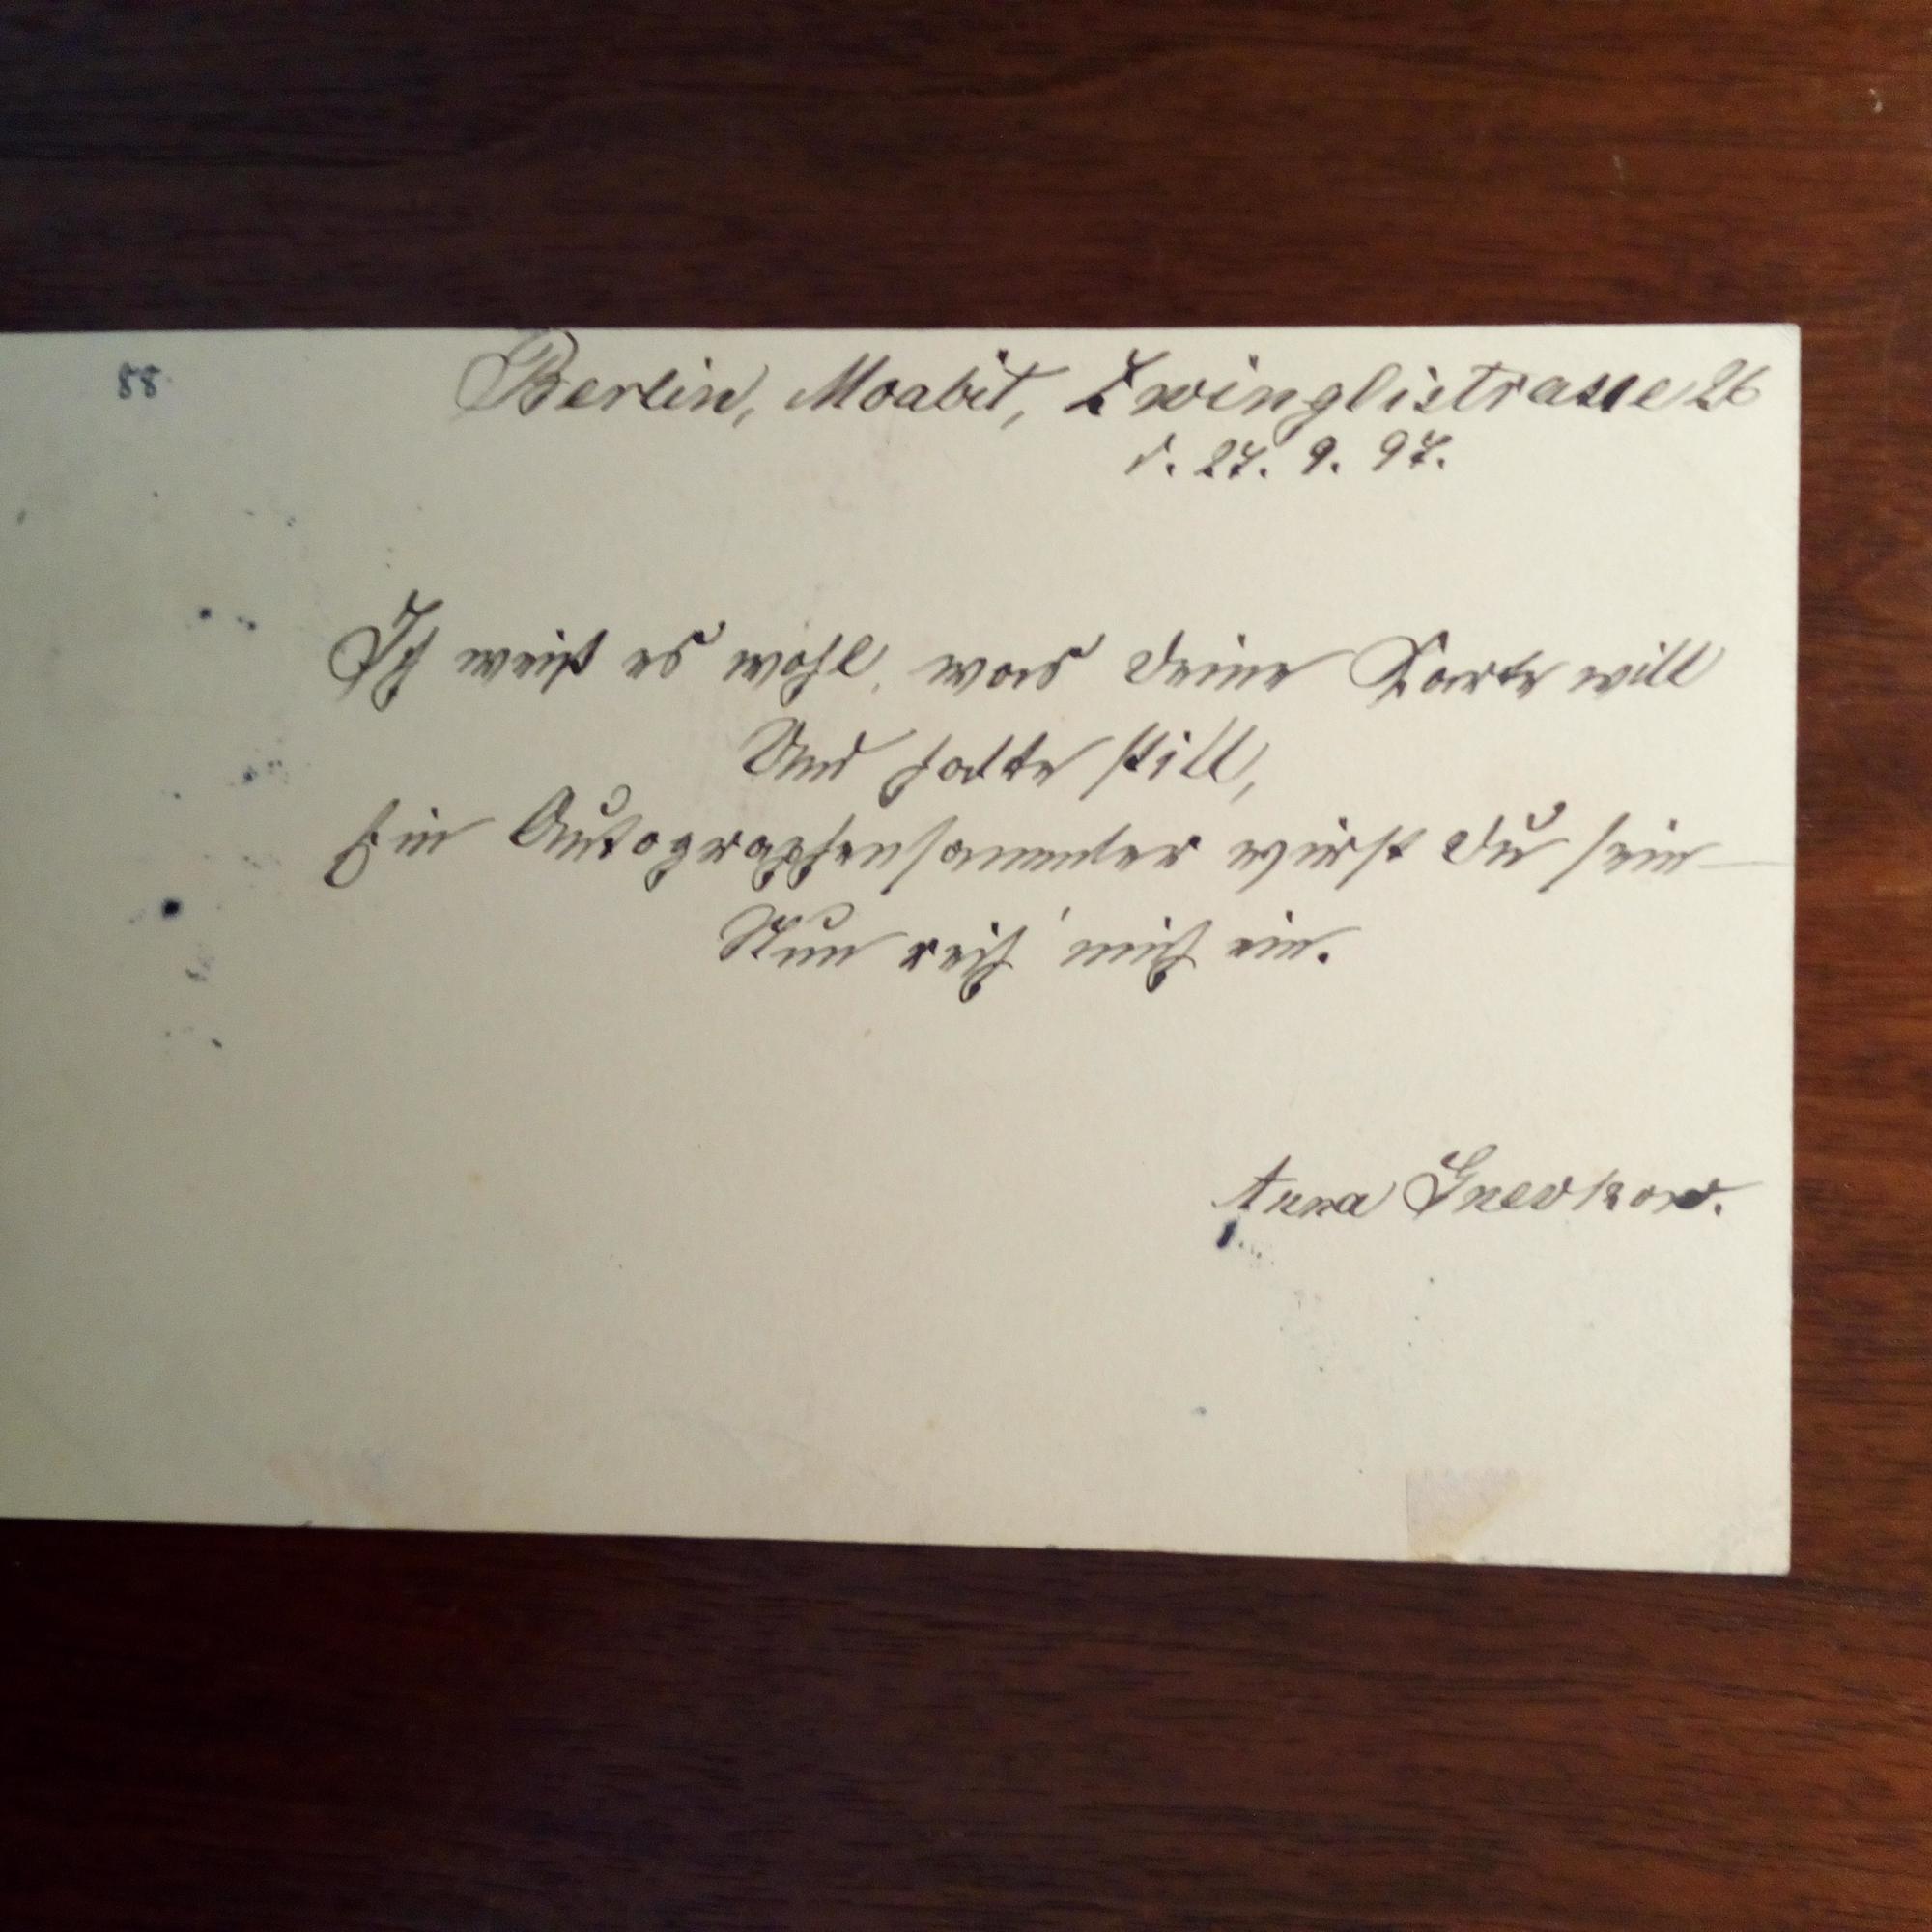 88
Berlin, Moabit, Zwinglistrasse 26
d. 27. 9. 97.
Ich weiß es wohl, was deine Karte will
Und halte still,
Ein Autographensammler wirst du sein –
Nun reih' mich ein.
Anna Gnevkow.